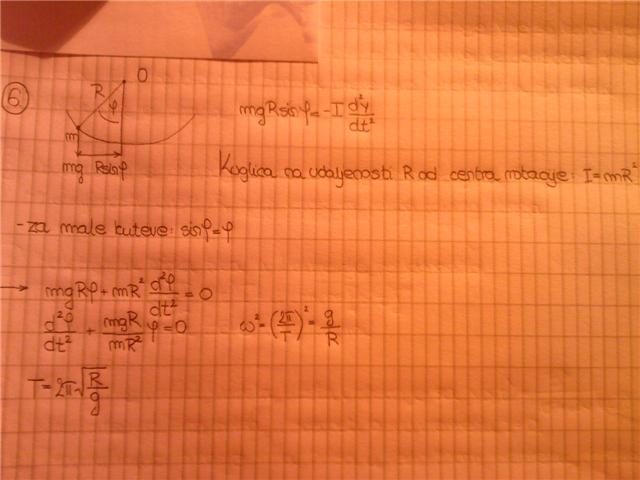 6
O
R
φ
m
mg Rsinφ
mgRsinφ = -I d²φ/dt²
Kuglica na udaljenosti R od centra rotacije: I = mR²
- za male kuteve: sinφ = φ
→ mgRφ + mR² d²φ/dt² = 0
d²φ/dt² + mgR/mR² φ = 0 ω² = (2π/T)² = g/R
T = 2π√(R/g)